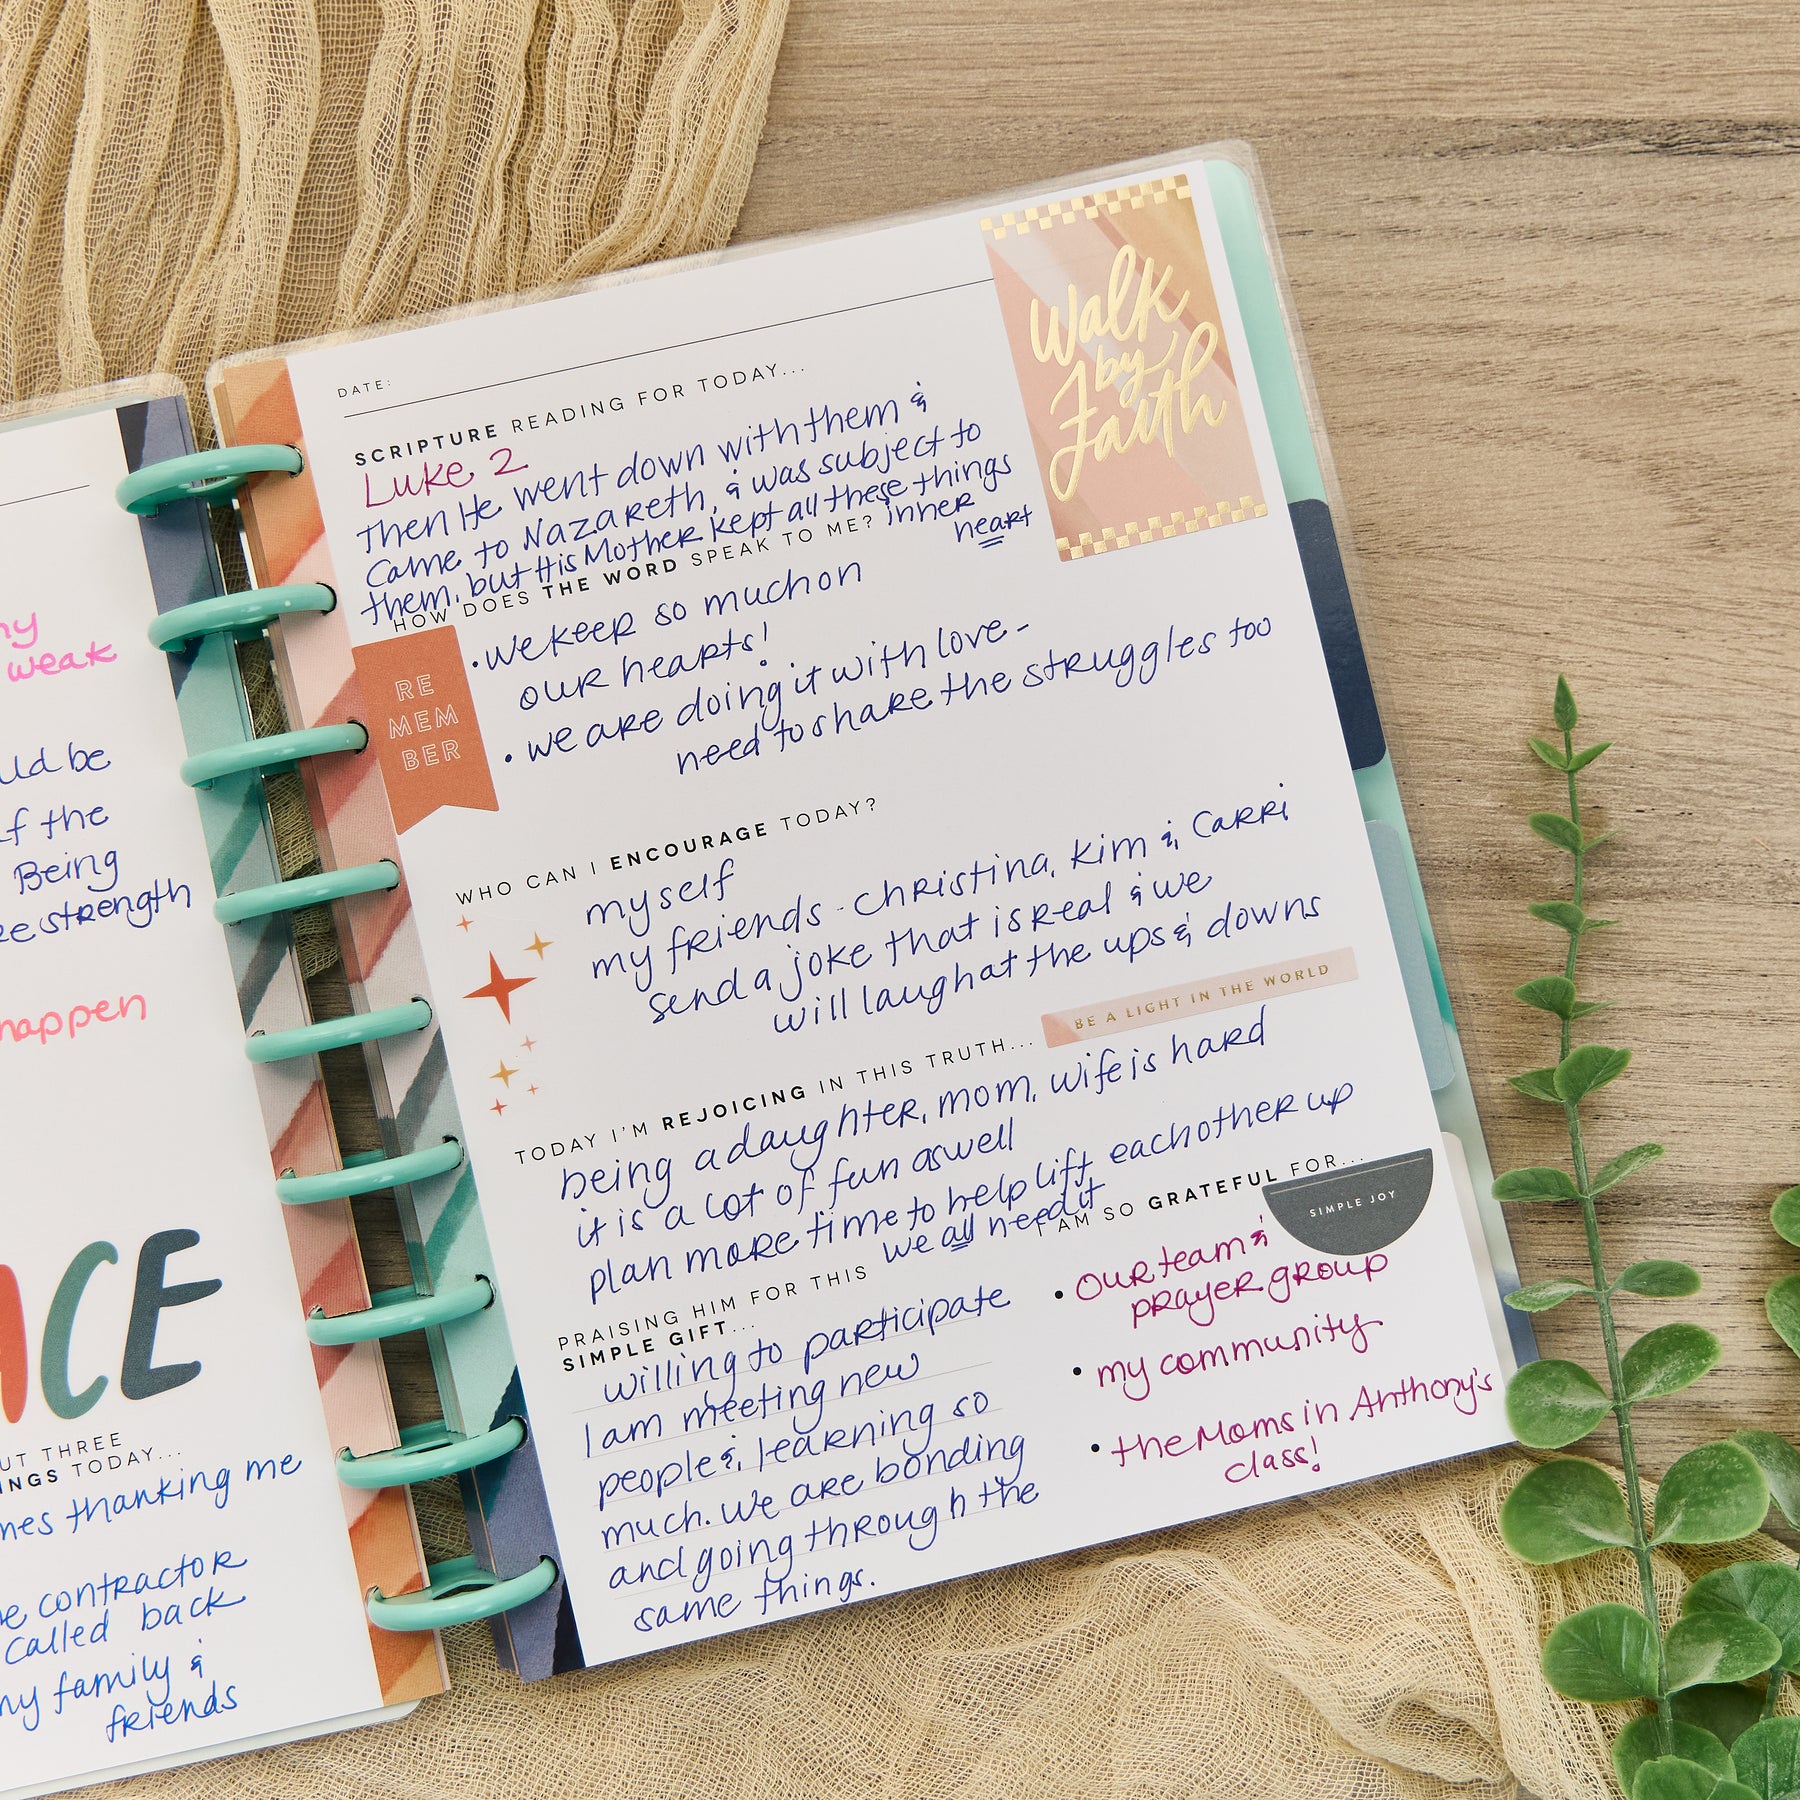 ny
weak
uld be
f the
Being
re strength
happen
ACE
UT THREE
INGS TODAY...
mes thanking me
e contractor
called back
ny family &
friends
DATE:
SCRIPTURE READING FOR TODAY...
Luke 2
Then He went down with them &
came to Nazareth, & was subject to
them, but His Mother kept all these things
inner
heart
HOW DOES THE WORD SPEAK TO ME?
• we keep so much on
our hearts!
• we are doing it with love -
need to share the struggles too
RE
MEM
BER
Walk
by
Faith
WHO CAN I ENCOURAGE TODAY?
myself
my friends - Christina, Kim & Carri
send a joke that is real & we
will laugh at the ups & downs
BE A LIGHT IN THE WORLD
TODAY I'M REJOICING IN THIS TRUTH...
being a daughter, mom, wife is hard
it is a lot of fun as well
plan more time to help lift each other up
we all need it
PRAISING HIM FOR THIS
SIMPLE GIFT...
willing to participate
I am meeting new
people & learning so
much. We are bonding
and going through the
same things.
I AM SO GRATEFUL FOR...
SIMPLE JOY
• Our team &
prayer group
• my community
• the Moms in Anthony's
class!